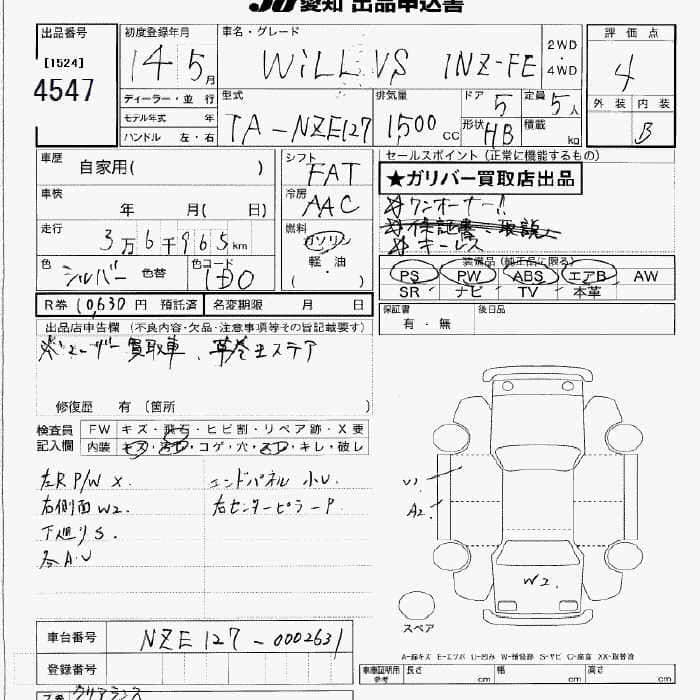 愛知 出品申込書
出品番号 初度登録年月 車名・グレード 評価点
[1524] 14 5月 WiLL VS 1NZ-FE 2WD・4WD 4
4547
ディーラー・並行 型式 排気量 ドア 定員 外装 内装
モデル年式 年 TA-NZE127 1,500cc 5 5人 B
ハンドル 左・右 形状 HB 積載 kg
車歴 自家用( ) シフト FAT セールスポイント(正常に機能するもの)
★ガリバー買取店出品
車検 年 月( 日) 冷房 AAC ワンオーナー!!
保証書、取説
走行 3万6千965km 燃料 ガソリン キーレス
軽・油
( )
色 シルバー 色替 色コード 1D0 装備品(純正品に限る)
PS PW ABS エアB AW
SR ナビ TV 本革
R券 10,630円 預託済 名変期限 月 日 保証書 後日品
有・無
出品店申告欄(不良内容・欠品・注意事項等その旨記載要す)
※ユーザー買取車、革巻キステア
修復歴 有〔箇所 〕
検査員 FW キズ・飛石・ヒビ割・リペア跡・X要
記入欄 内装 キズ・汚レ・コゲ・穴・スレ・キレ・破レ
左R P/W X. エンドパネル 小U.
右側面 W2. 右センターピラーP.
下廻りS.
各A.U
U1
A2.
W2.
スペア
車台番号 NZE127-0002631
A-線キズ E-エクボ U-凹み W-補修跡 S-サビ C-腐食 XX-取替済
登録番号 車庫証明用参考 長さ cm 幅 cm 高さ cm
クリアランス